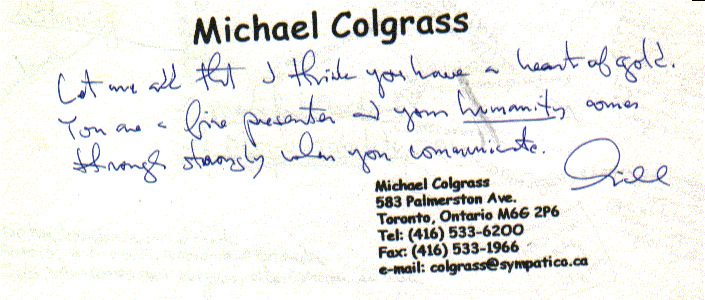 Michael Colgrass
Let me add that I think you have a heart of gold.
You are a fine presenter and your humanity comes
through strongly when you communicate.
Michael Colgrass
583 Palmerston Ave.
Toronto, Ontario M6G 2P6
Tel: (416) 533-6200
Fax: (416) 533-1966
e-mail: colgrass@sympatico.ca